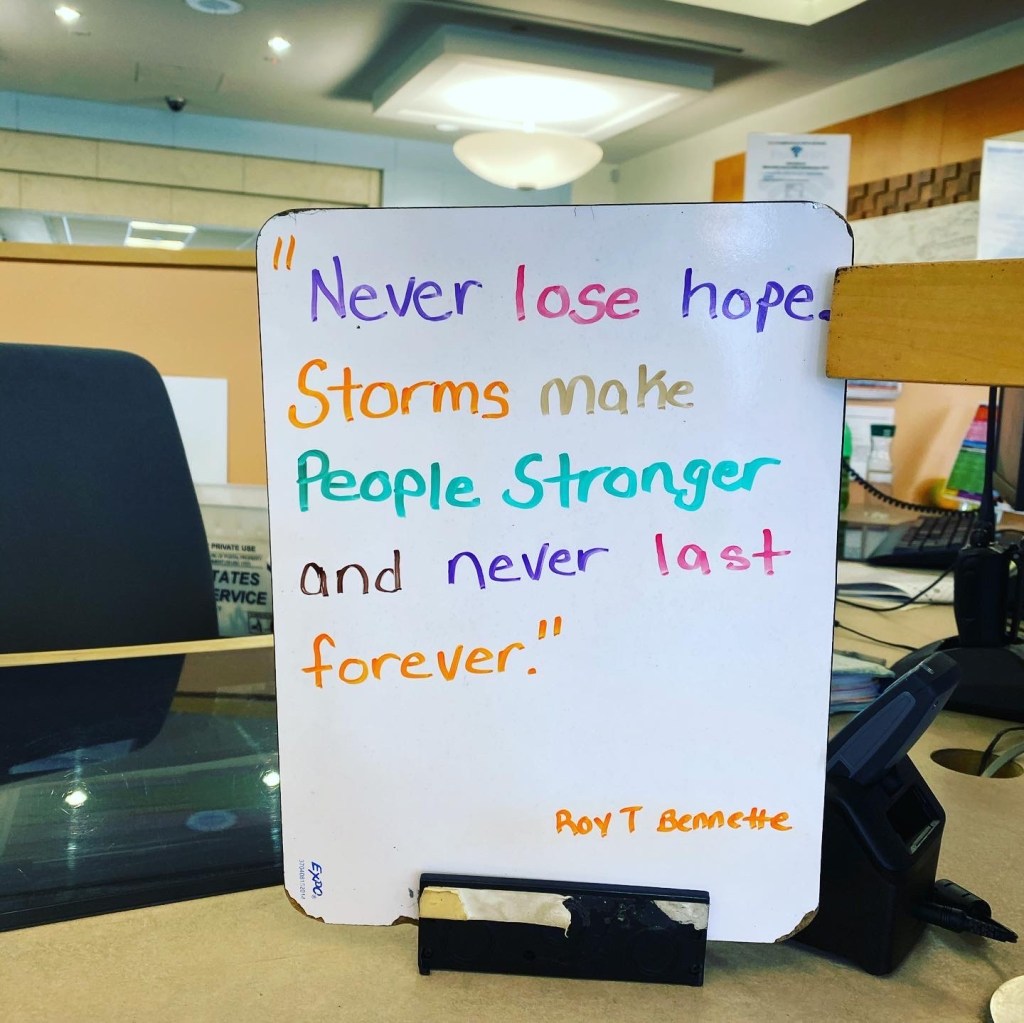 "Never lose hope.
Storms make
People Stronger
and never last
forever."
Roy T Bennette
EXPO
PRIVATE USE
TATES
ERVICE